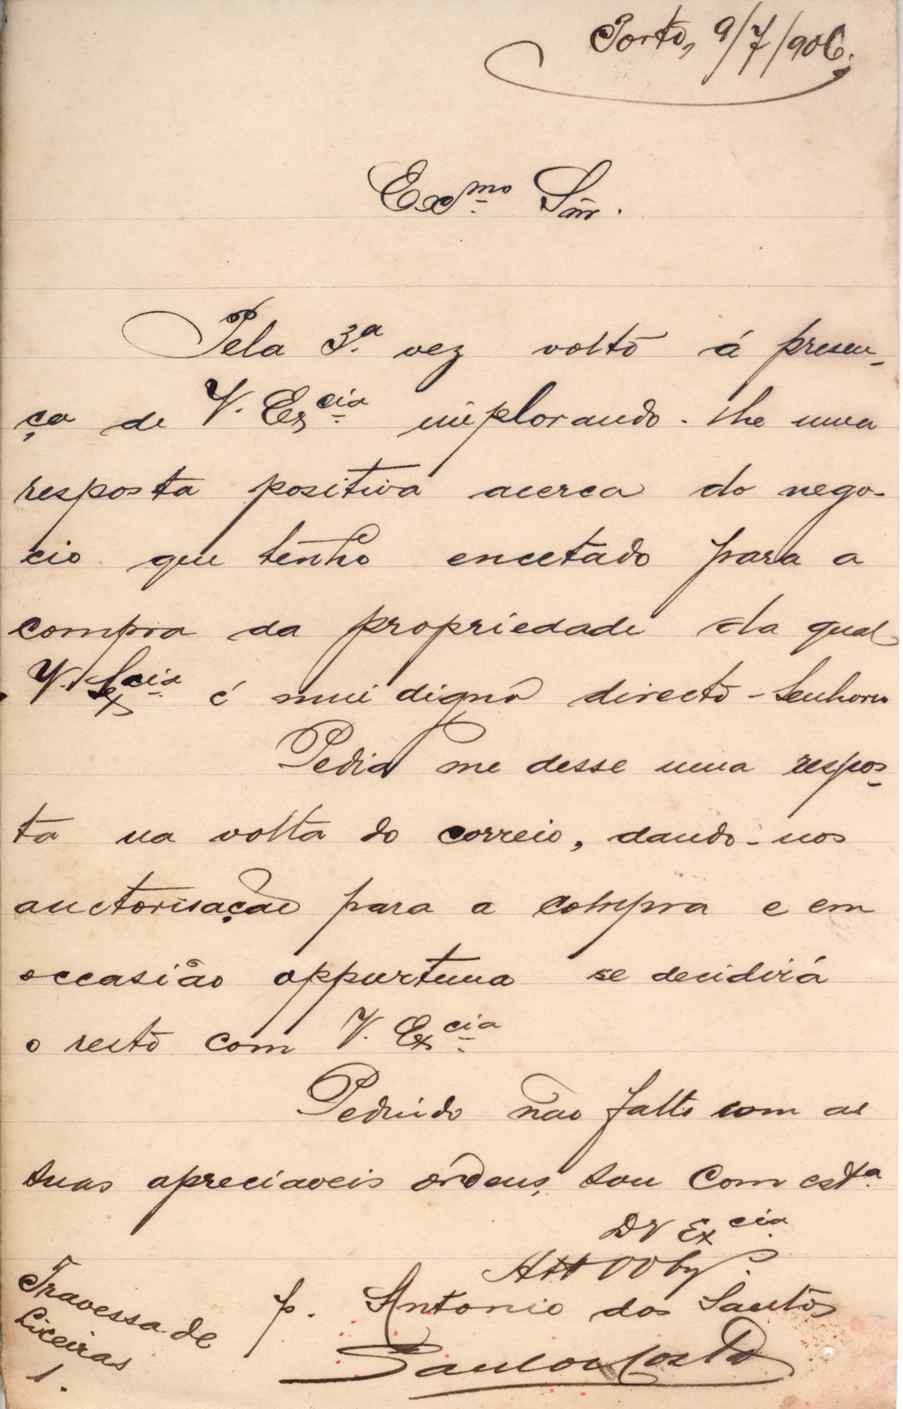 Porto, 9/7/906.
Exmo Snr.
Pela 3.a vez volto á presen-
ça de V. Excia implorando-lhe uma
resposta positiva acerca do nego-
cio que tenho encetado para a
compra da propriedade da qual
V. Excia é mui digno directo-Senhorio
Pedia me desse uma respos-
ta na volta do correio, dando-nos
auctorisação para a compra e em
occasião oppurtuna se decidirá
o resto com V. Excia
Pedindo não falte com as
suas apreciaveis ordens, sou com esta.
D V Excia
p. Antonio dos Santos
Travessa de
Liceiras
1.